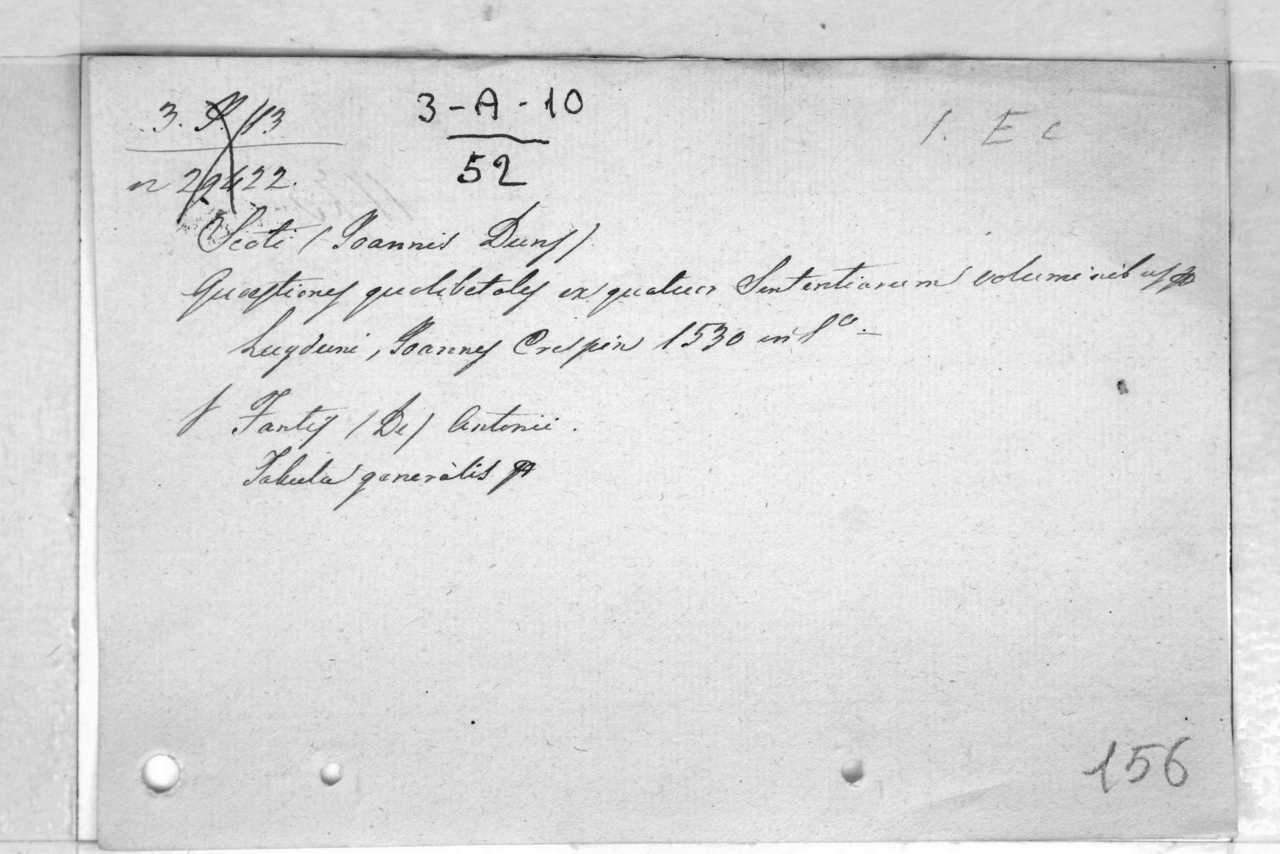 3-A-10
52
1. E c
n 29422.
Scoti (Joannis Duns)
Questiones quolibetales ex quatuor Sententiarum voluminibus
Lugduni, Joannes Crespin 1530 in 8º.
Fantis (De) Antonii.
Tabula generalis
156